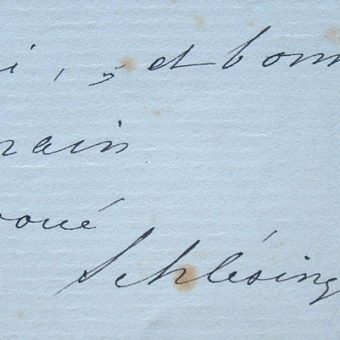 i, , et bonn
rain
voué
Schlésing